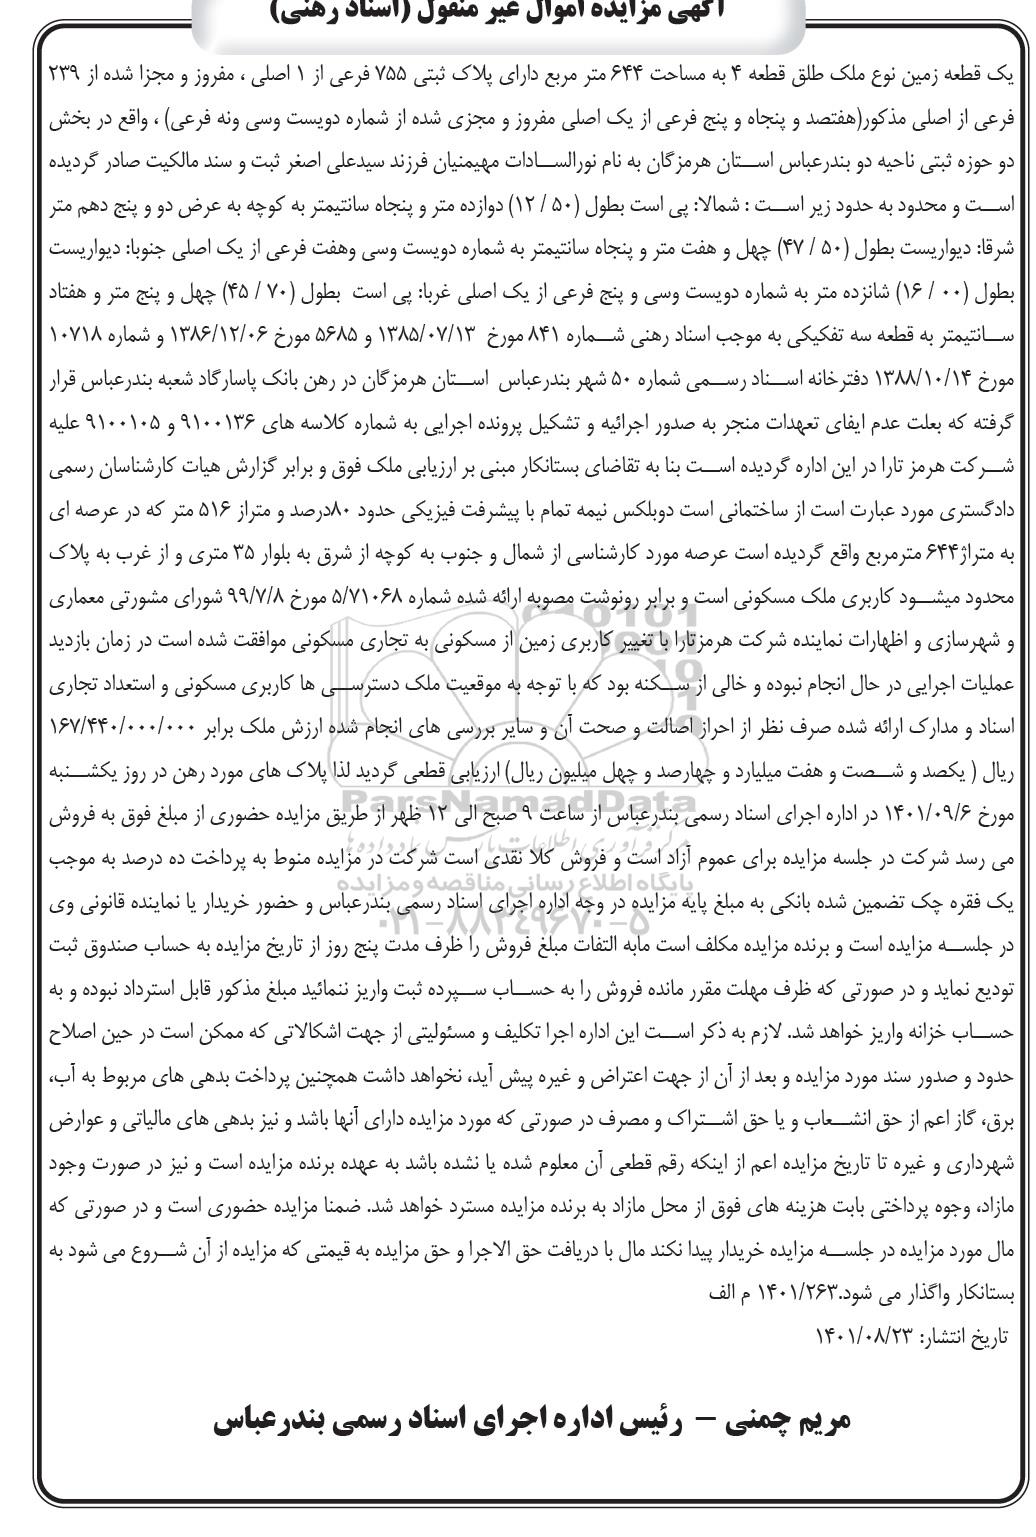 آگهی مزایده اموال غیر منقول (اسناد رهنی)
یک قطعه زمین نوع ملک طلق قطعه ۴ به مساحت ۶۴۴ متر مربع دارای پلاک ثبتی ۷۵۵ فرعی از ۱ اصلی ، مفروز و مجزا شده از ۲۳۹
فرعی از اصلی مذکور(هفتصد و پنجاه و پنج فرعی از یک اصلی مفروز و مجزی شده از شماره دویست وسی ونه فرعی) ، واقع در بخش
دو حوزه ثبتی ناحیه دو بندرعباس استان هرمزگان به نام نورالسادات مهیمنیان فرزند سیدعلی اصغر ثبت و سند مالکیت صادر گردیده
است و محدود به حدود زیر است : شمالا: پی است بطول (۵۰ / ۱۲) دوازده متر و پنجاه سانتیمتر به کوچه به عرض دو و پنج دهم متر
شرقا: دیواریست بطول (۵۰ / ۴۷) چهل و هفت متر و پنجاه سانتیمتر به شماره دویست وسی وهفت فرعی از یک اصلی جنوبا: دیواریست
بطول (۰۰ / ۱۶) شانزده متر به شماره دویست وسی و پنج فرعی از یک اصلی غربا: پی است بطول (۷۰ / ۴۵) چهل و پنج متر و هفتاد
سانتیمتر به قطعه سه تفکیکی به موجب اسناد رهنی شماره ۸۴۱ مورخ ۱۳۸۵/۰۷/۱۳ و ۵۶۸۵ مورخ ۱۳۸۶/۱۲/۰۶ و شماره ۱۰۷۱۸
مورخ ۱۳۸۸/۱۰/۱۴ دفترخانه اسناد رسمی شماره ۵۰ شهر بندرعباس استان هرمزگان در رهن بانک پاسارگاد شعبه بندرعباس قرار
گرفته که بعلت عدم ایفای تعهدات منجر به صدور اجرائیه و تشکیل پرونده اجرایی به شماره کلاسه های ۹۱۰۰۱۳۶ و ۹۱۰۰۱۰۵ علیه
شرکت هرمز تارا در این اداره گردیده است بنا به تقاضای بستانکار مبنی بر ارزیابی ملک فوق و برابر گزارش هیات کارشناسان رسمی
دادگستری مورد عبارت است از ساختمانی است دوبلکس نیمه تمام با پیشرفت فیزیکی حدود ۸۰درصد و متراز ۵۱۶ متر که در عرصه ای
به متراژ۶۴۴ مترمربع واقع گردیده است عرصه مورد کارشناسی از شمال و جنوب به کوچه از شرق به بلوار ۳۵ متری و از غرب به پلاک
محدود میشود کاربری ملک مسکونی است و برابر رونوشت مصوبه ارائه شده شماره ۵/۷۱۰۶۸ مورخ ۹۹/۷/۸ شورای مشورتی معماری
و شهرسازی و اظهارات نماینده شرکت هرمزتارا با تغییر کاربری زمین از مسکونی به تجاری مسکونی موافقت شده است در زمان بازدید
عملیات اجرایی در حال انجام نبوده و خالی از سکنه بود که با توجه به موقعیت ملک دسترسی ها کاربری مسکونی و استعداد تجاری
اسناد و مدارک ارائه شده صرف نظر از احراز اصالت و صحت آن و سایر بررسی های انجام شده ارزش ملک برابر ۱۶۷/۴۴۰/۰۰۰/۰۰۰
ریال ( یکصد و شصت و هفت میلیارد و چهارصد و چهل میلیون ریال) ارزیابی قطعی گردید لذا پلاک های مورد رهن در روز یکشنبه
مورخ ۱۴۰۱/۰۹/۶ در اداره اجرای اسناد رسمی بندرعباس از ساعت ۹ صبح الی ۱۲ ظهر از طریق مزایده حضوری از مبلغ فوق به فروش
می رسد شرکت در جلسه مزایده برای عموم آزاد است و فروش کلا نقدی است شرکت در مزایده منوط به پرداخت ده درصد به موجب
یک فقره چک تضمین شده بانکی به مبلغ پایه مزایده در وجه اداره اجرای اسناد رسمی بندرعباس و حضور خریدار یا نماینده قانونی وی
در جلسه مزایده است و برنده مزایده مکلف است مابه التفات مبلغ فروش را ظرف مدت پنج روز از تاریخ مزایده به حساب صندوق ثبت
تودیع نماید و در صورتی که ظرف مهلت مقرر مانده فروش را به حساب سپرده ثبت واریز ننمائید مبلغ مذکور قابل استرداد نبوده و به
حساب خزانه واریز خواهد شد. لازم به ذکر است این اداره اجرا تکلیف و مسئولیتی از جهت اشکالاتی که ممکن است در حین اصلاح
حدود و صدور سند مورد مزایده و بعد از آن از جهت اعتراض و غیره پیش آید، نخواهد داشت همچنین پرداخت بدهی های مربوط به آب،
برق، گاز اعم از حق انشعاب و یا حق اشتراک و مصرف در صورتی که مورد مزایده دارای آنها باشد و نیز بدهی های مالیاتی و عوارض
شهرداری و غیره تا تاریخ مزایده اعم از اینکه رقم قطعی آن معلوم شده یا نشده باشد به عهده برنده مزایده است و نیز در صورت وجود
مازاد، وجوه پرداختی بابت هزینه های فوق از محل مازاد به برنده مزایده مسترد خواهد شد. ضمنا مزایده حضوری است و در صورتی که
مال مورد مزایده در جلسه مزایده خریدار پیدا نکند مال با دریافت حق الاجرا و حق مزایده به قیمتی که مزایده از آن شروع می شود به
بستانکار واگذار می شود.۱۴۰۱/۲۶۳ م الف
تاریخ انتشار: ۱۴۰۱/۰۸/۲۳
مریم چمنی – رئیس اداره اجرای اسناد رسمی بندرعباس
ParsNamadData
پایگاه اطلاع رسانی مناقصه و مزایده
۰۲۱-۸۸۳۴۹۶۷۰-۵